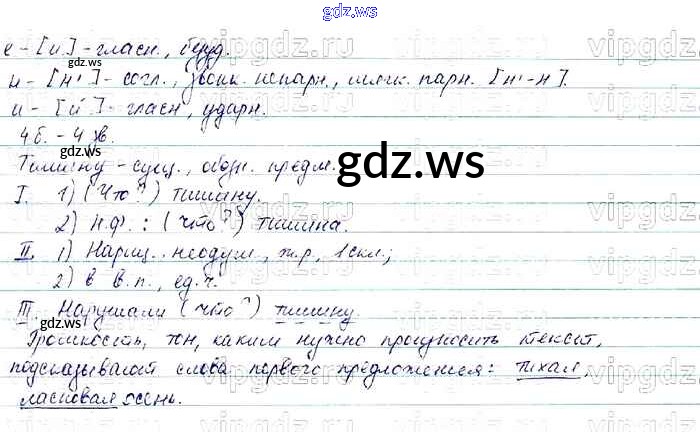 gdz.ws
е – [и] – гласн., безуд.
н – [н'] – согл., звонк. непарн., мягк. парн. [н'-н].
и – [и́] – гласн., ударн.
4 б. – 4 зв.
Тишину – сущ., обозн. предм.
I. 1) (Что?) тишину.
2) Н.ф.: (что?) тишина.
II. 1) Нариц., неодуш., ж.р., 1 скл.;
2) в В.п., ед.ч.
III. Нарушали (что?) тишину.
Громкость, тон, каким нужно произносить текст,
подсказывают слова первого предложения: тихая,
ласковая осень.
gdz.ws
gdz.ws
gdz.ws
gdz.ws